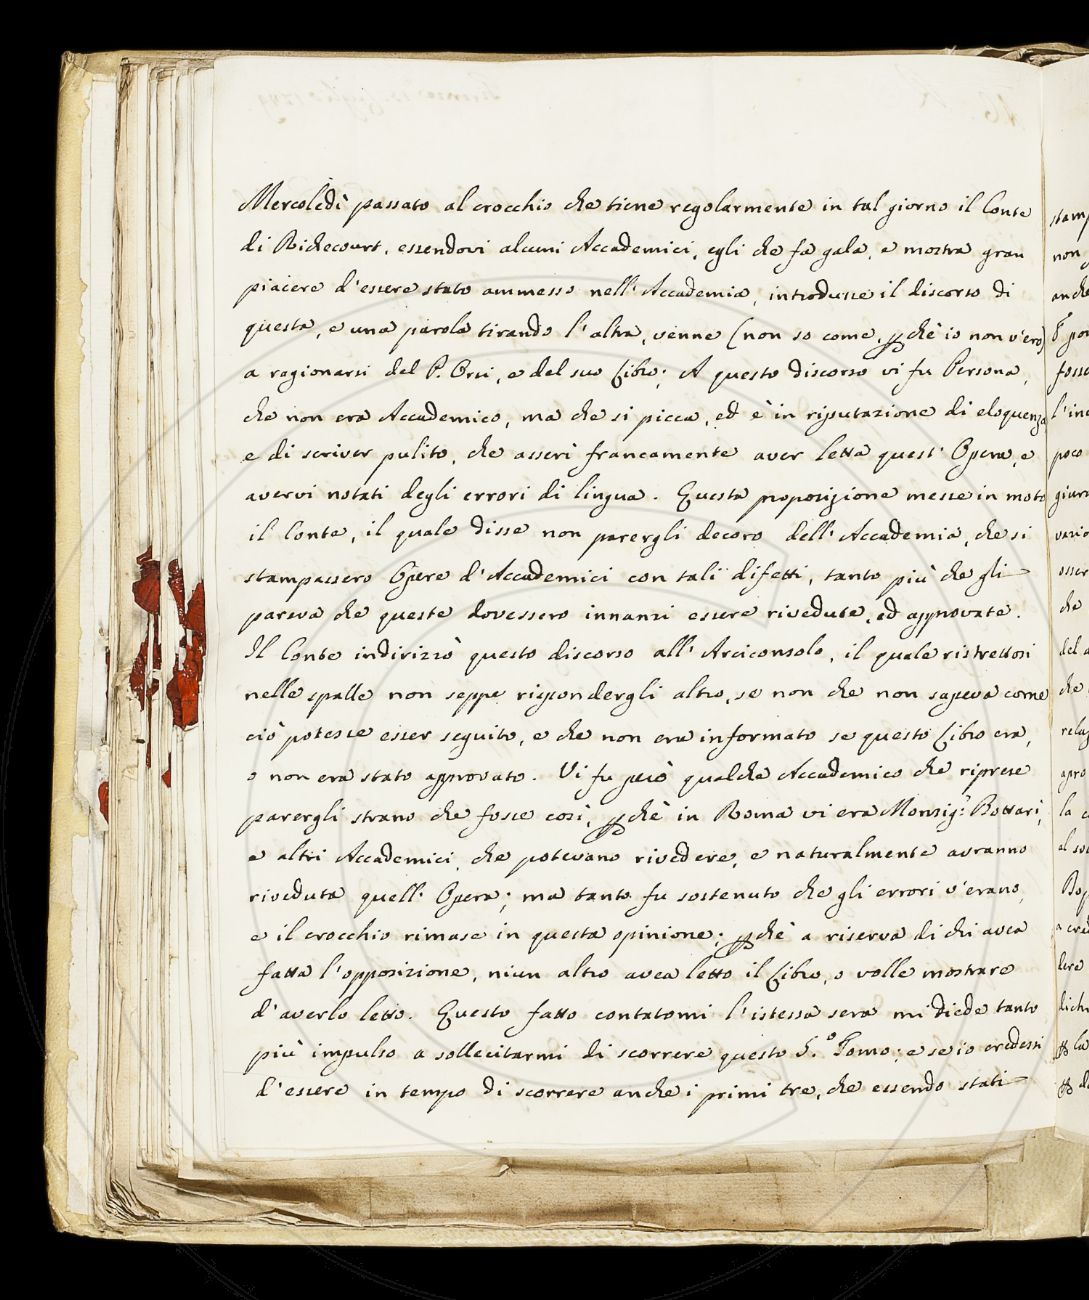 Mercoledì passato al crocchio che tiene regolarmente in tal giorno il Conte
di Richecourt, essendovi alcuni Accademici, egli che fa gala, e mostra gran
piacere d'essere stato ammesso nell'Accademia, introdusse il discorso di
questa, e una parola tirando l'altra, venne (non so come, pchè io non v'ero)
a ragionarsi del P. Orsi, e del suo Libro; A questo discorso vi fu Persona,
che non era Accademico, ma che si picca, ed è in riputazione di eloquenza
e di scriver pulito, che asserì francamente aver letta quest'Opera, e
avervi notati degli errori di lingua. Questa proposizione messe in moto
il Conte, il quale disse non parergli decoro dell'Accademia, che si
stampassero Opere d'Accademici con tali difetti, tanto più che gli
pareva che queste dovessero innanzi essere rivedute, ed approvate.
Il Conte indirizzò questo discorso all'Arciconsolo, il quale ristrettosi
nelle spalle non seppe rispondergli altro, se non che non sapeva come
ciò potesse esser seguito, e che non era informato se questo Libro era,
o non era stato approvato. Vi fu però qualche Accademico che riprese
parergli strano che fosse così, pchè in Roma vi era Monsig.r Bottari,
e altri Accademici che potevano rivedere, e naturalmente avranno
riveduta quell'Opera; ma tanto fu sostenuto che gli errori v'erano,
e il crocchio rimase in questa opinione; pchè a riserva di chi avea
fatta l'opposizione, niun altro avea letto il Libro, o volle mostrare
d'averlo letto. Questo fatto contatomi l'istessa sera mi diede tanto
più impulso a sollecitarmi di scorrere questo 5.o Tomo; e se io credessi
d'essere in tempo di scorrere anche i primi tre, che essendo stati